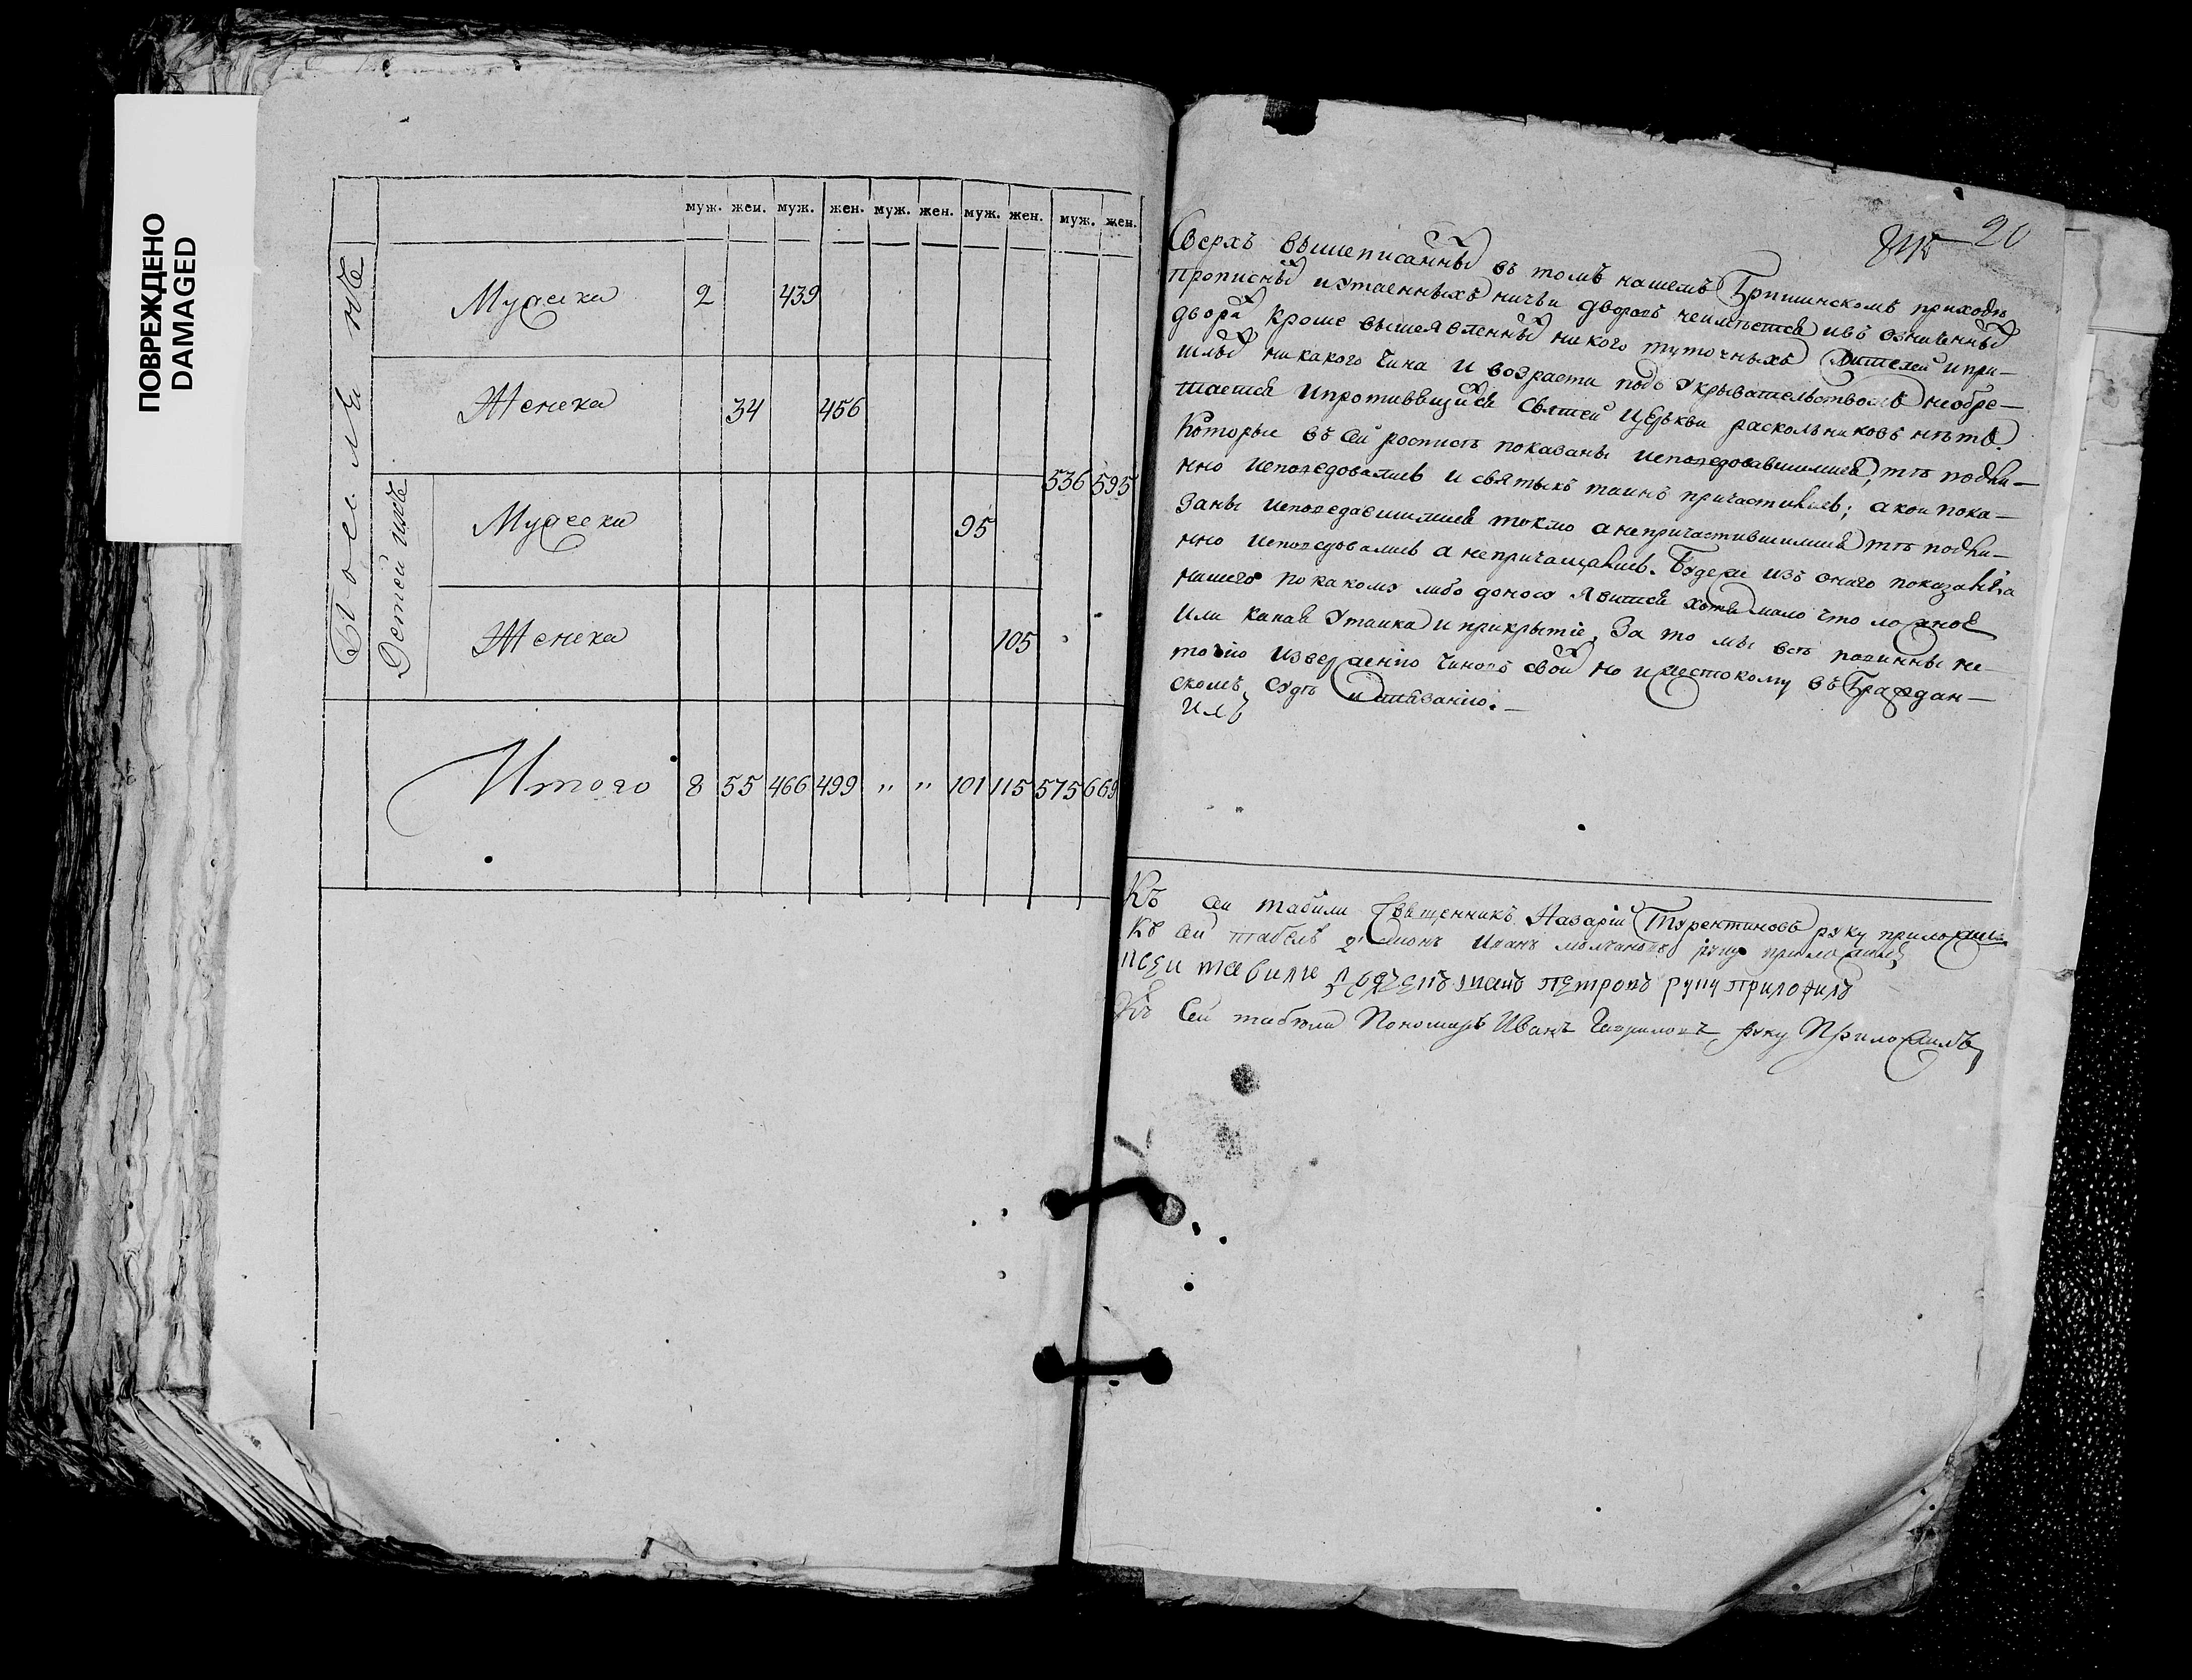 ПОВРЕЖДЕНО
DAMAGED
муж. жен. муж. жен. муж. жен. муж. жен. муж. жен.
Мужеска 2 439
Женска 34 456
536 595
Детей ихъ
Мужеска 95
Женска 105
Итого 8 55 466 499 " " 101 115 575 669
20
Сверхъ вышеписанных въ томъ нашемъ Гришинскомъ приходѣ
прописных и утаенныхъ ничьи дворовъ неимѣется и въ
дворах кроме вышеявленных никого туточныхъ жителей и при-
шлых никакого чина и возраста подъ укрывательствомъ необре-
тается и противящихся святей церькви раскольниковъ нѣтъ
Которые въ сей росписѣ показаны исповедовавшимися, тѣ подли-
нно исповедовались и святыхъ таинъ причастились; а кои пока-
заны исповедавшимися токмо а непричастившимися тѣ подли-
нно исповедовались а непричащались. Буде же изъ онаго показанія
нашего по какому либо доносу явится хотя мало что ложное
или какая утайка и прикрытіе, За то мы всѣ повинны не
точію изверженію чиновъ свои но и жестокому въ Граждан-
скомъ судѣ истязанію.
Къ сей табели Священникъ Назарій Турентиновъ руку приложилъ
Къ сей табелѣ Иванъ Молчановъ руку приложилъ
ксеи табили Иванъ петровъ руку приложилъ
Къ Сей табели Пономарь Иванъ Гавриловъ руку Приложилъ